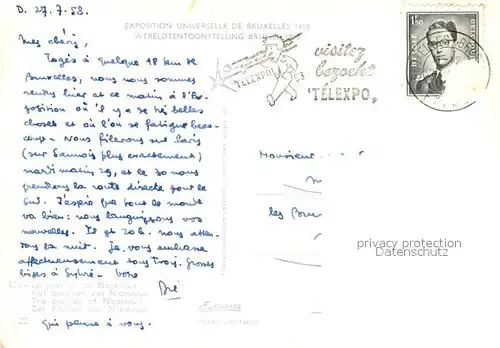 D. 27.7.58.
EXPOSITION UNIVERSELLE DE BRUXELLES 1958
WERELDTENTOONSTELLING BRUSSEL
Mes chéris,
Logés à quelque 18 kms de
Bruxelles, nous nous sommes
rendus hier et ce matin à l'Ex-
position où il y a de très belles
choses et où l'on se fatigue beau-
coup. Nous filerons sur Paris
(sur Sannois plus exactement)
mardi matin 29, et le 30 nous
prendrons la route directe pour le
Sud. J'espère que tout le monde
va bien : nous languissons vos
nouvelles. Il est 20 h. nous atten-
dons la nuit. Je vous embrasse
affectueusement tous trois. Grosses
bises à Sylvie. Votre
qui pense à vous.
TELEXPO
visitez
bezoekt
TELEXPO,
1F50
Monsieur
les
Le pavillon du Nicaragua
Het paviljoen van Nicaragua
The pavilion of Nicaragua
Der Pavillon von Nicaragua
22
privacy protection
Datenschutz